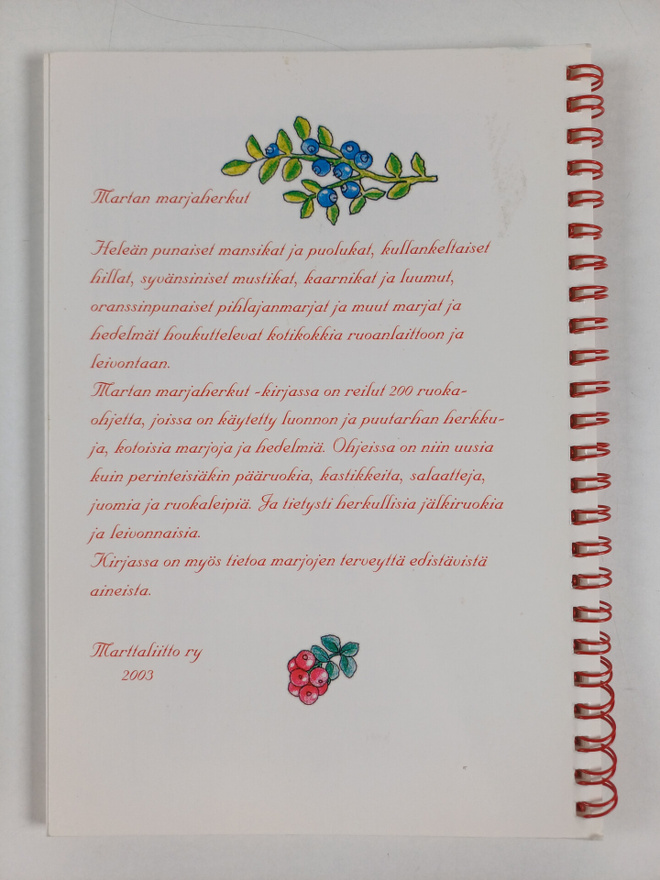 Martan marjaherkut
Heleän punaiset mansikat ja puolukat, kullankeltaiset
hillat, syvänsiniset mustikat, kaarnikat ja luumut,
oranssinpunaiset pihlajanmarjat ja muut marjat ja
hedelmät houkuttelevat kotikokkia ruoanlaittoon ja
leivontaan.
Martan marjaherkut -kirjassa on reilut 200 ruoka-
ohjetta, joissa on käytetty luonnon ja puutarhan herkku-
ja, kotoisia marjoja ja hedelmiä. Ohjeissa on niin uusia
kuin perinteisiäkin pääruokia, kastikkeita, salaatteja,
juomia ja ruokaleipiä. Ja tietysti herkullisia jälkiruokia
ja leivonnaisia.
Kirjassa on myös tietoa marjojen terveyttä edistävistä
aineista.
Marttaliitto ry
2003